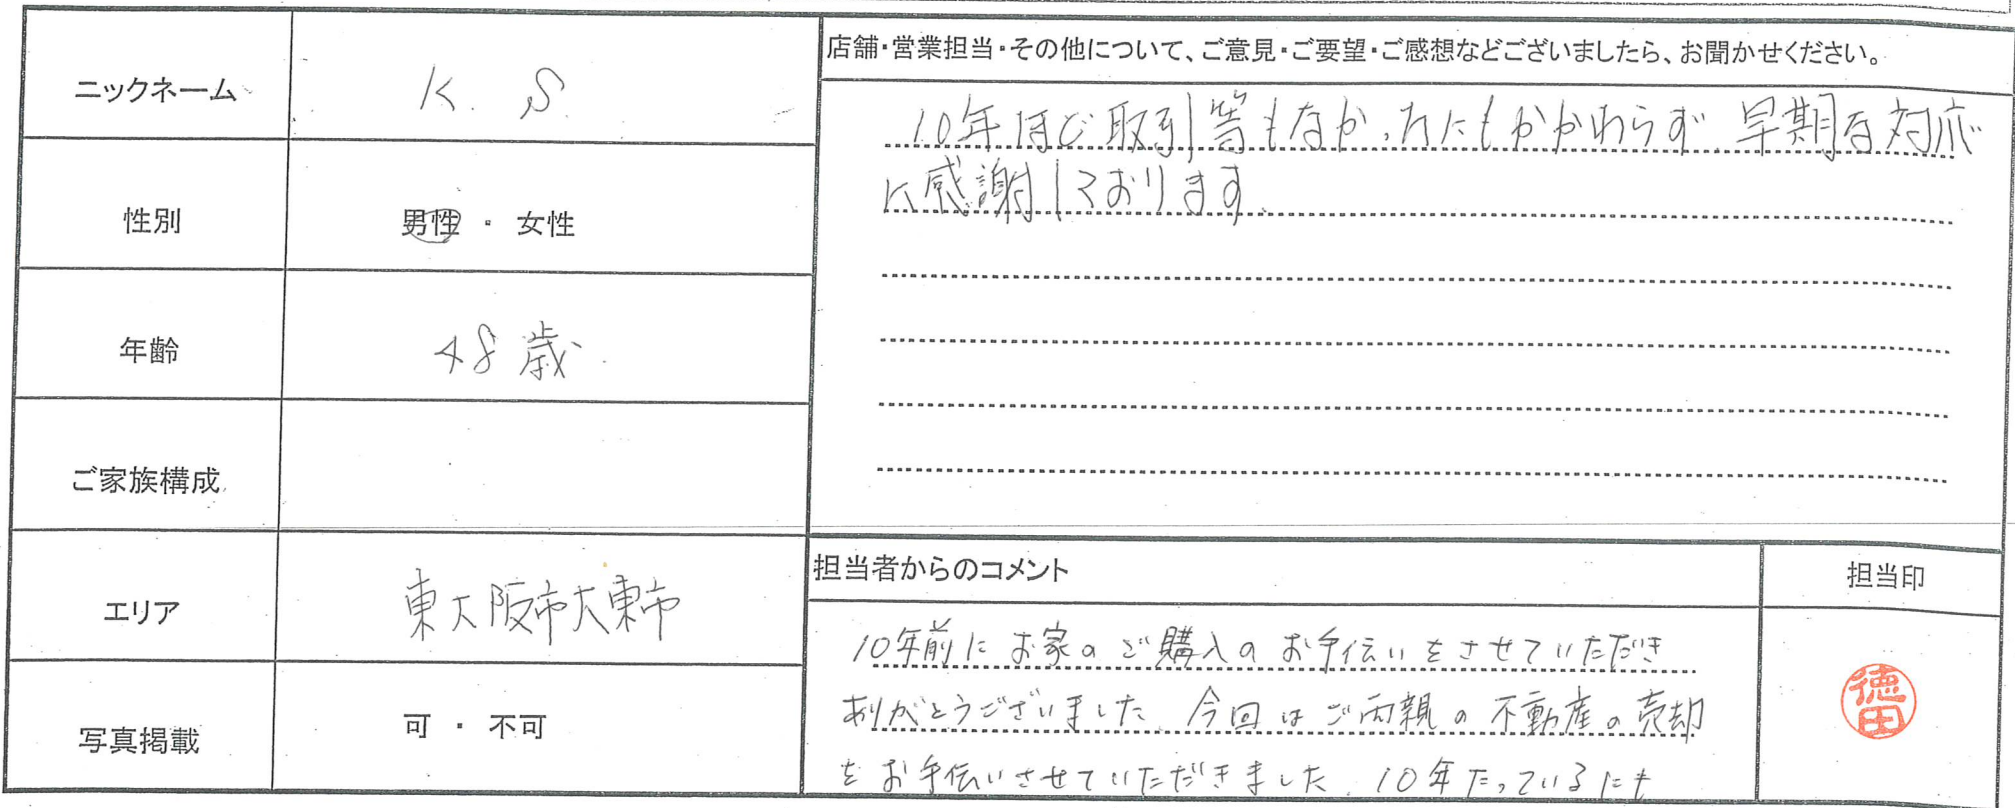 ニックネーム
K. S
性別
男性 ・ 女性
年齢
48歳
ご家族構成
エリア
東大阪市大東市
写真掲載
可 ・ 不可
店舗・営業担当・その他について、ご意見・ご要望・ご感想などございましたら、お聞かせください。
10年ほど取引等もなかったにもかかわらず、早期な対応
に感謝しております。
担当者からのコメント
10年前にお家のご購入のお手伝いをさせていただき
ありがとうございました。今回はご両親の不動産の売却
をお手伝いさせていただきました。10年たっているにも
担当印
徳田